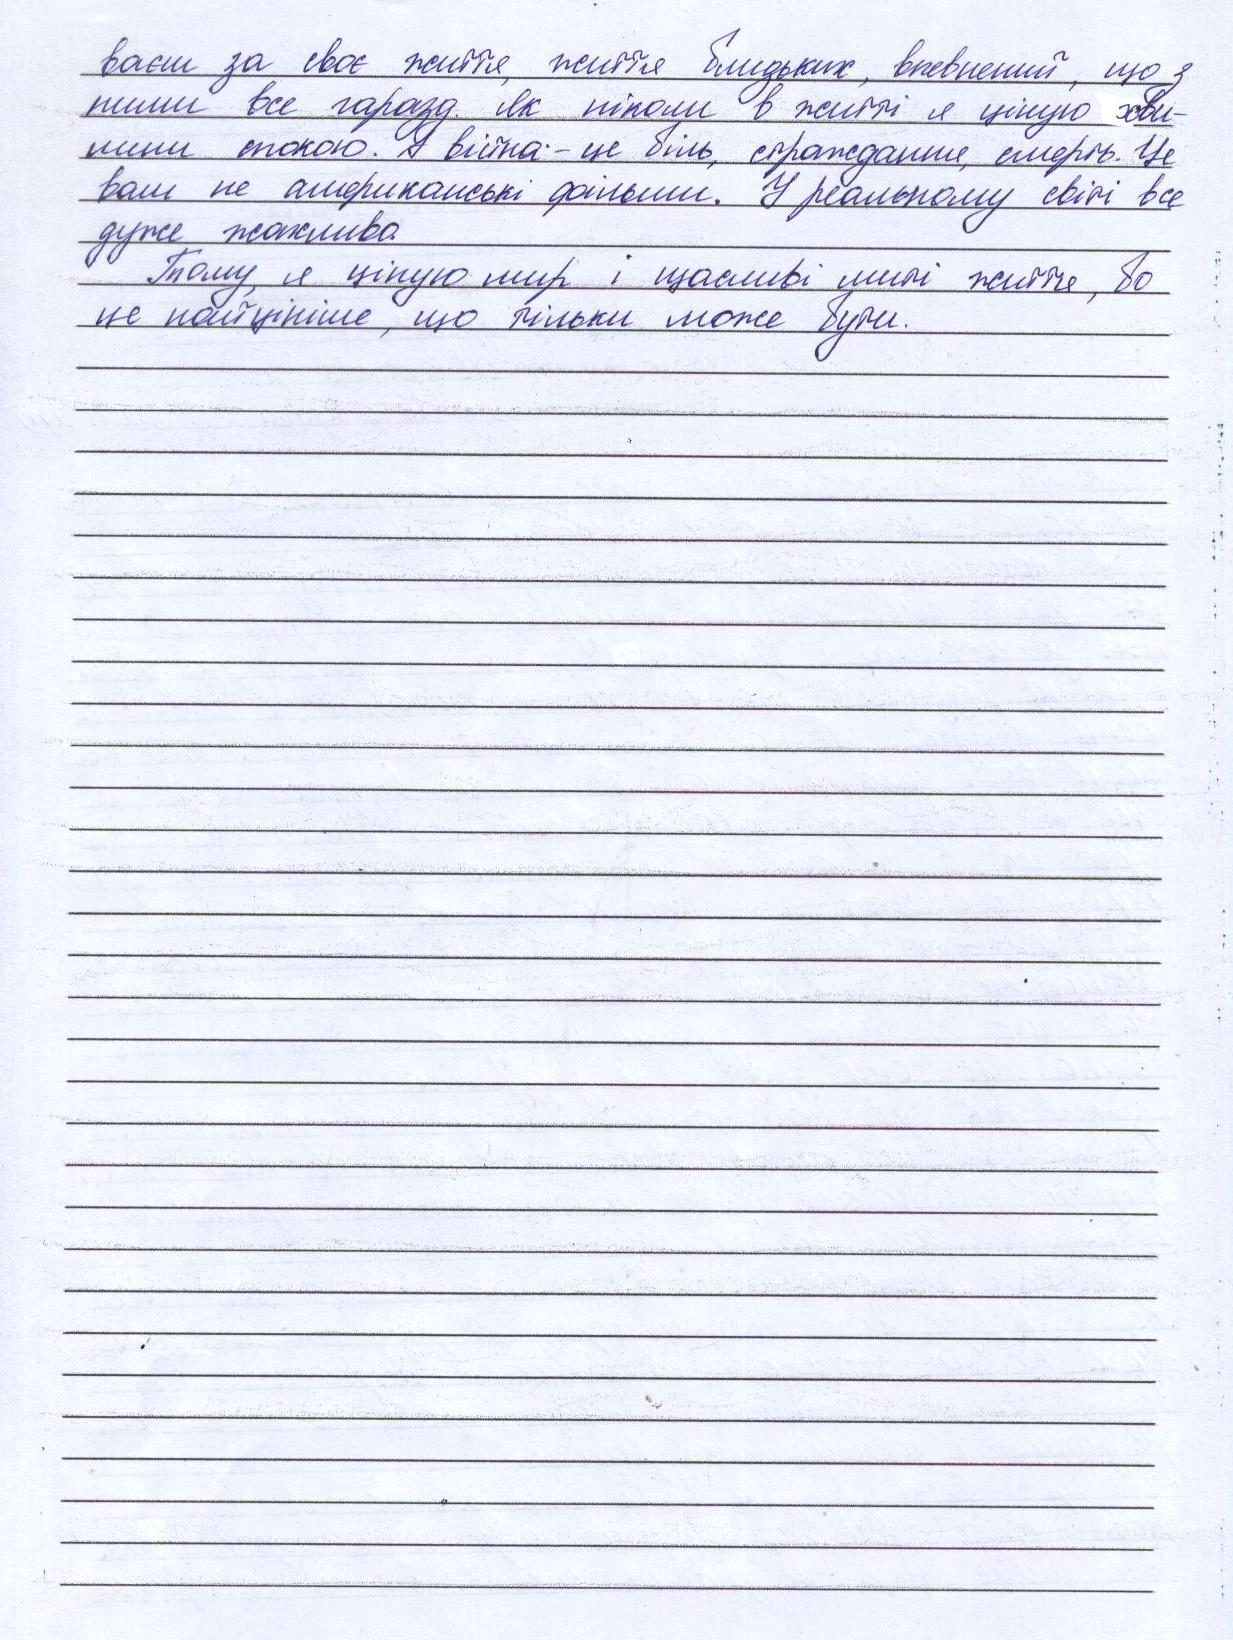 ваєш за своє життя, життя близьких, впевнений, що з
ними все гаразд. Як ніколи в житті я ціную хви-
лини спокою. А війна - це біль, страждання, смерть. Це
вам не американські фільми. У реальному світі все
дуже жахливо.
Тому, я ціную мир і щасливі миті життя, бо
це найцініше, що тільки може бути.